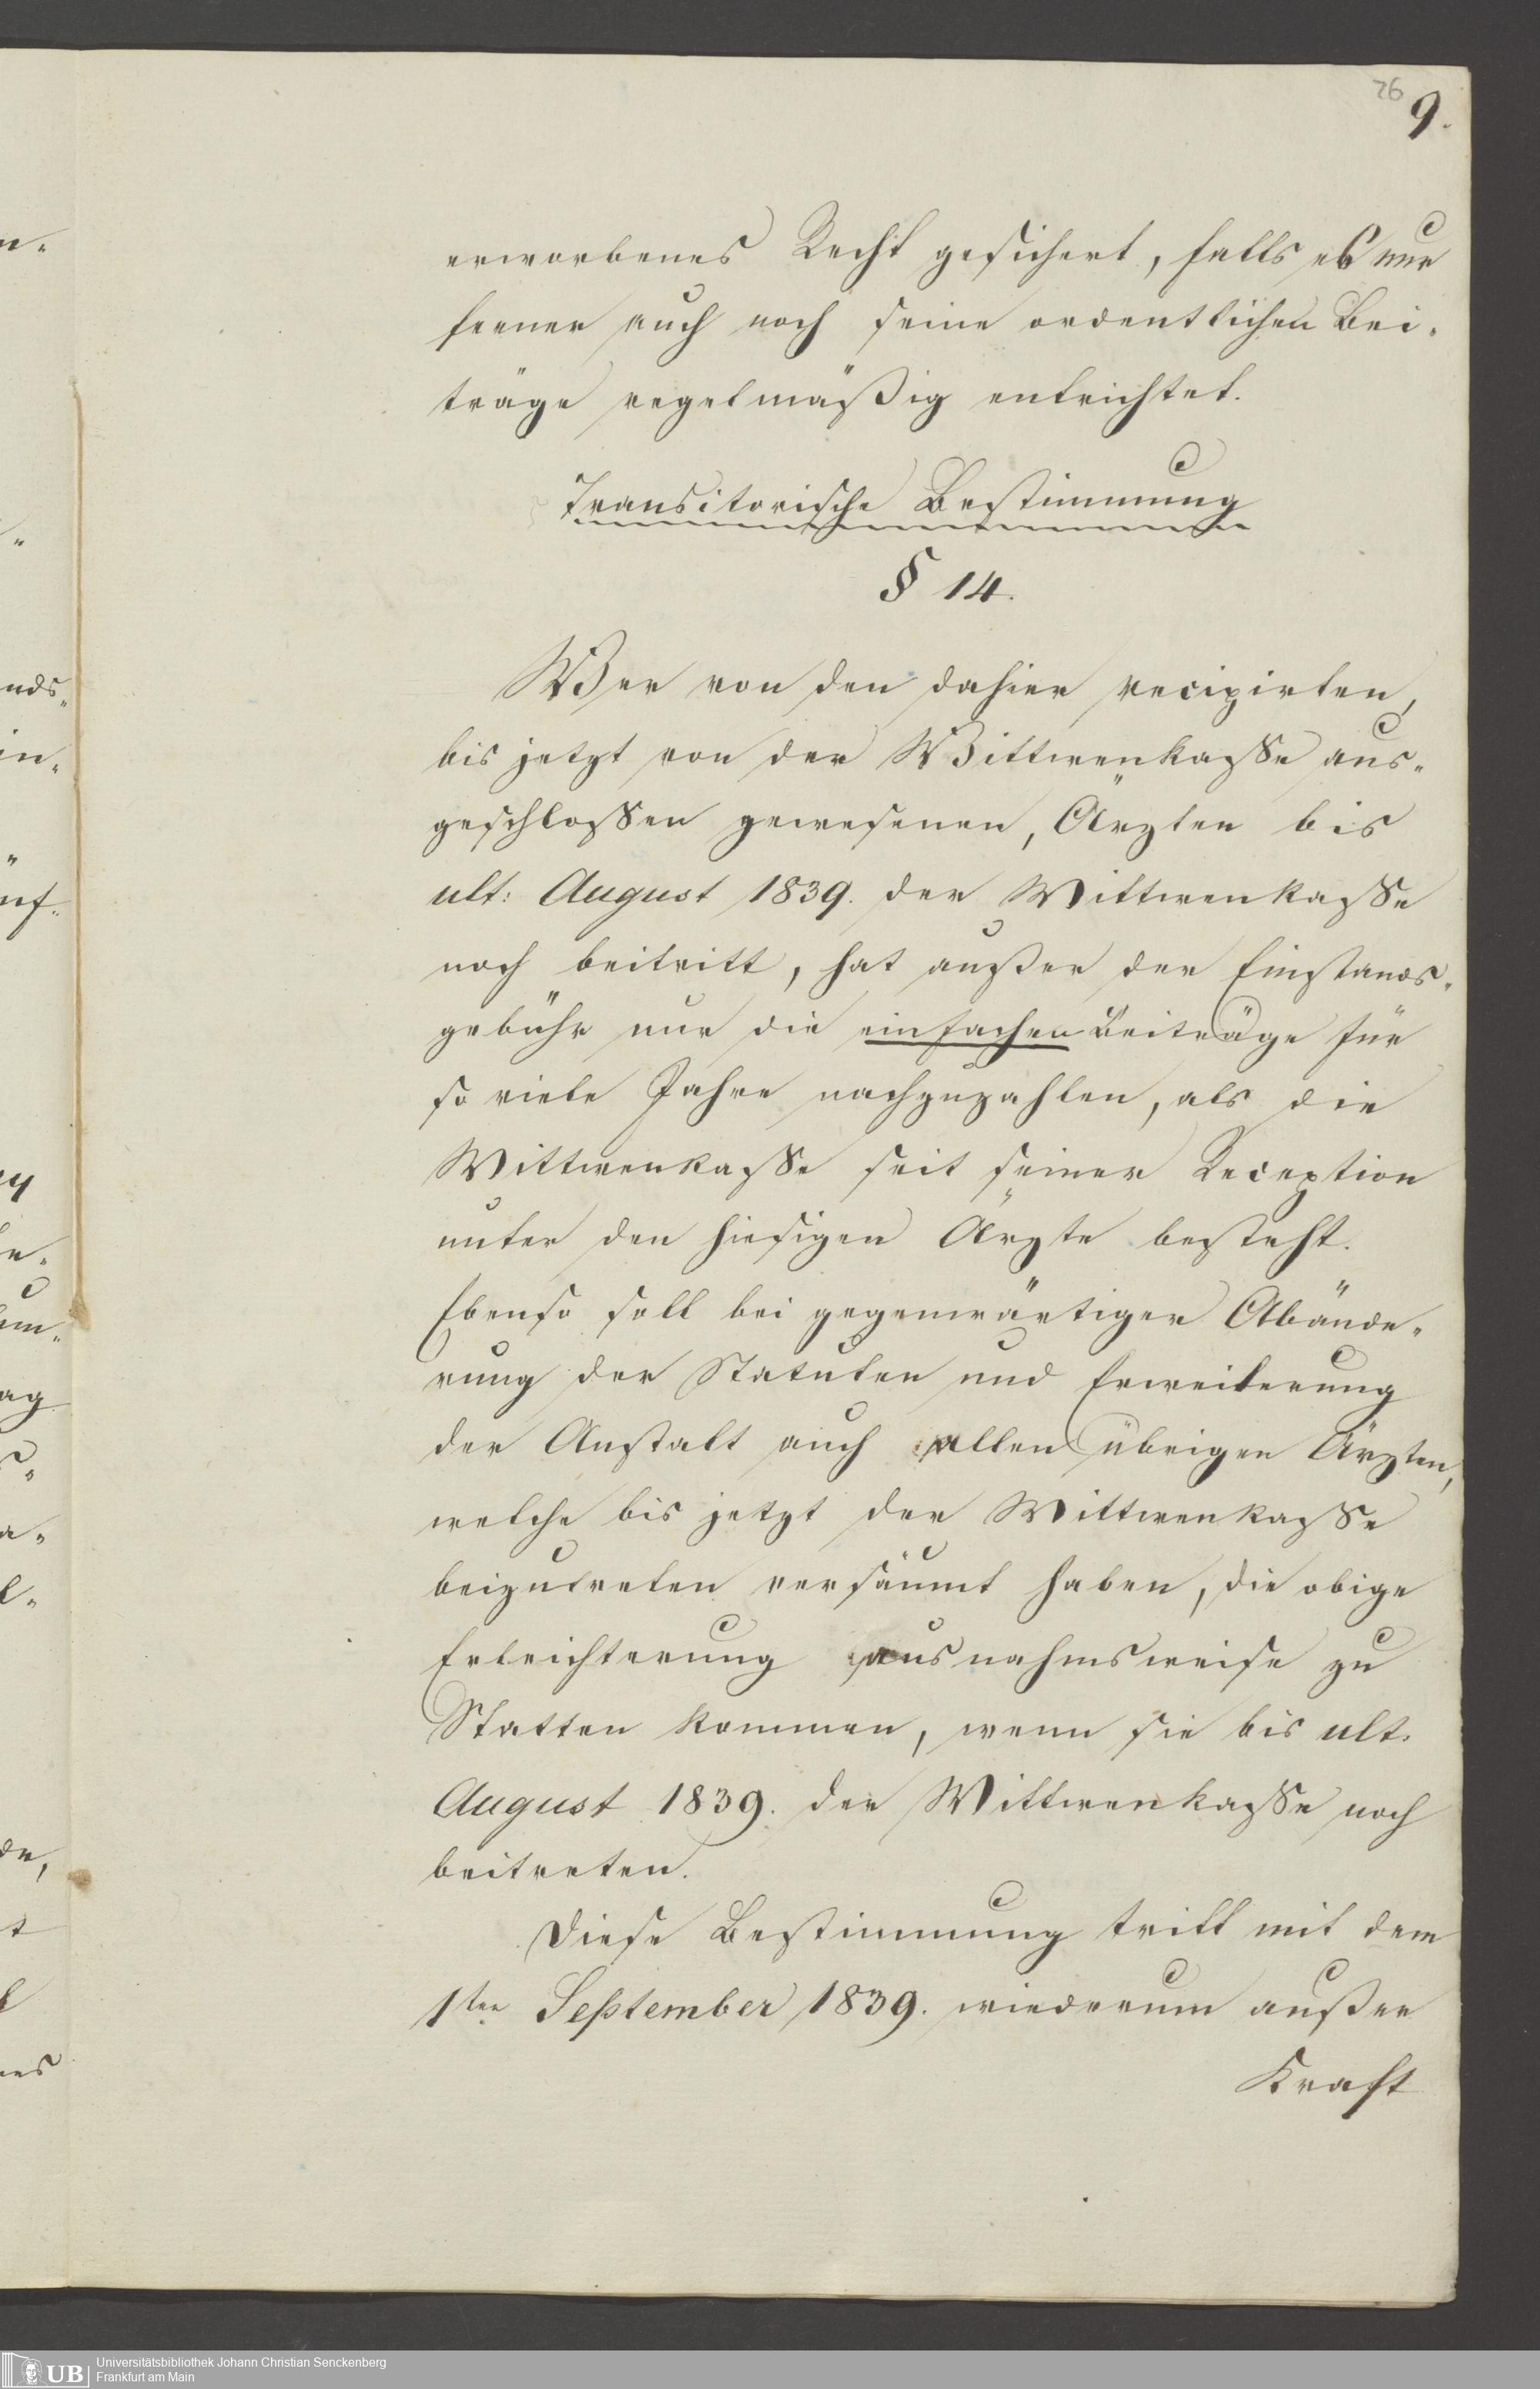 26
9.
erworbenes Recht gesichert, falls es nur
ferner auch noch seine ordentlichen Bei-
träge regelmäßig entrichtet.
Transitorische Bestimmung
§ 14.
Wer von den dahier recipirten,
bis jetzt von der Wittwenkasse aus-
geschlossen gewesenen, Ärzten bis
ult: August 1839. der Wittwenkasse
noch beitritt, hat außer der Einstands-
gebühr nur die einfachen Beiträge für
so viele Jahre nachzuzahlen, als die
Wittwenkasse seit seiner Reception
unter den hiesigen Ärzte besteht.
Ebenso soll bei gegenwärtiger Abände-
rung der Statuten und Erweiterung
der Anstalt auch allen übrigen Ärzten,
welche bis jetzt der Wittwenkasse
beizutreten versäumt haben, die obige
Erleichterung ausnahmsweise zu
Statten kommen, wenn sie bis ult.
August 1839. der Wittwenkasse noch
beitreten.
Diese Bestimmung tritt mit dem
1ten September 1839. wiederum außer
Kraft
UB
Universitätsbibliothek Johann Christian Senckenberg
Frankfurt am Main